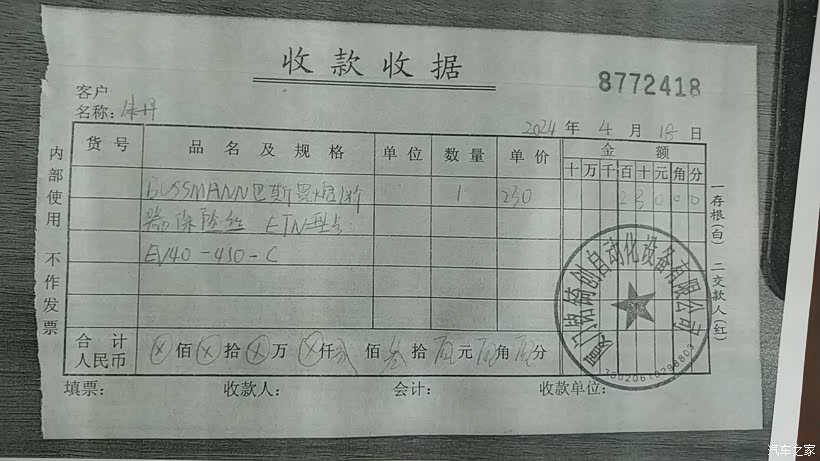 收款收据
8772418
客户
名称:朱丹
2024 年 4 月 18 日
货号 品名及规格 单位 数量 单价 金额
十 万 千 百 十 元 角 分
BUSSMANN巴斯曼熔断 1 230 2 3 0 0 0
器保险丝 ETN型号:
EV40-450-C
合计
人民币 ⊗佰⊗拾⊗万⊗仟贰佰叁拾 元 角 分
填票: 收款人: 会计: 收款单位:
内部使用 不作发票
一存根(白) 二交款人(红)
创自动化设备有限公司
汽车之家